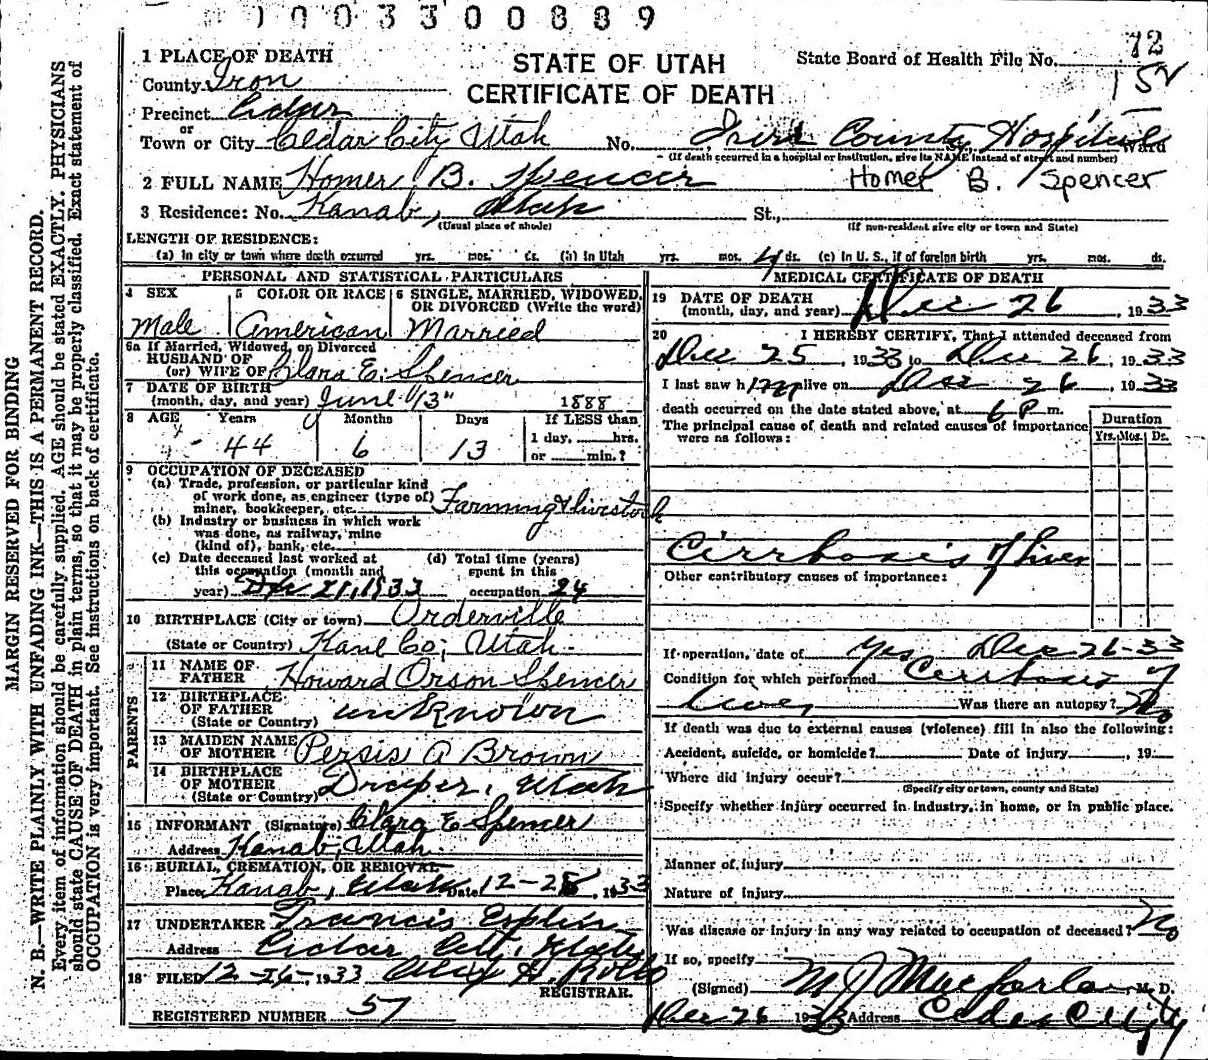 0 0 3 3 0 0 8 8 9
72
1 PLACE OF DEATH
STATE OF UTAH
State Board of Health File No.
152
County Iron
CERTIFICATE OF DEATH
Precinct Cedar
Town or City Cedar City Utah No. Iron County Hospital St., Ward
(If death occurred in a hospital or institution, give its NAME instead of street and number)
2 FULL NAME Homer B. Spencer Homer B. Spencer
3 Residence: No. Kanab, Utah St.,
(Usual place of abode) (If non-resident give city or town and State)
LENGTH OF RESIDENCE:
(a) In city or town where death occurred yrs. mos. ds. (b) In Utah yrs. mos. 4 ds. (c) In U. S., if of foreign birth yrs. mos. ds.
PERSONAL AND STATISTICAL PARTICULARS
4 SEX 5 COLOR OR RACE 6 SINGLE, MARRIED, WIDOWED, OR DIVORCED (Write the word)
Male American Married
6a If Married, Widowed, or Divorced
HUSBAND OF
(or) WIFE OF Clara E. Spencer
7 DATE OF BIRTH
(month, day, and year) June 13" 1888
8 AGE Years Months Days If LESS than
44 6 13 1 day, hrs.
or min.?
9 OCCUPATION OF DECEASED
(a) Trade, profession, or particular kind
of work done, as engineer (type of)
miner, bookkeeper, etc. Farming & livestock
(b) Industry or business in which work
was done, as railway, mine
(kind of), bank, etc.
(c) Date deceased last worked at (d) Total time (years)
this occupation (month and spent in this
year) Dec 21, 1933 occupation 24
10 BIRTHPLACE (City or town) Orderville
(State or Country) Kane Co; Utah.
PARENTS
11 NAME OF
FATHER Howard Orson Spencer
12 BIRTHPLACE
OF FATHER
(State or Country) unknown
13 MAIDEN NAME
OF MOTHER Persis A Brown
14 BIRTHPLACE
OF MOTHER
(State or Country) Draper, Utah
15 INFORMANT (Signature) Clara E Spencer
Address Kanab, Utah.
16 BURIAL, CREMATION, OR REMOVAL
Place Kanab, Utah Date 12-28, 1933
17 UNDERTAKER Francis Esplin
Address Cedar City, Utah
18 FILED 12-26-1933
REGISTRAR.
REGISTERED NUMBER 57
MEDICAL CERTIFICATE OF DEATH
19 DATE OF DEATH
(month, day, and year) Dec 26, 1933
20 I HEREBY CERTIFY, That I attended deceased from
Dec 25 1933 to Dec 26, 1933
I last saw him alive on Dec 26, 1933
death occurred on the date stated above, at 6 P m.
The principal cause of death and related causes of importance
were as follows:
Duration
Yrs. Mos. Ds.
Cirrhosis of liver
Other contributory causes of importance:
If operation, date of Yes Dec 26-33
Condition for which performed Cirrhosis of
liver Was there an autopsy? No
If death was due to external causes (violence) fill in also the following:
Accident, suicide, or homicide? Date of injury , 19
Where did injury occur?
(Specify city or town, county and State)
Specify whether injury occurred in industry, in home, or in public place.
Manner of injury
Nature of injury
Was disease or injury in any way related to occupation of deceased? No
If so, specify
(Signed) M J Macfarlane, M. D.
Dec 26 1933 Address Cedar City
MARGIN RESERVED FOR BINDING
N. B.—WRITE PLAINLY WITH UNFADING INK—THIS IS A PERMANENT RECORD.
Every item of information should be carefully supplied. AGE should be stated EXACTLY. PHYSICIANS
should state CAUSE OF DEATH in plain terms, so that it may be properly classified. Exact statement of
OCCUPATION is very important. See instructions on back of certificate.